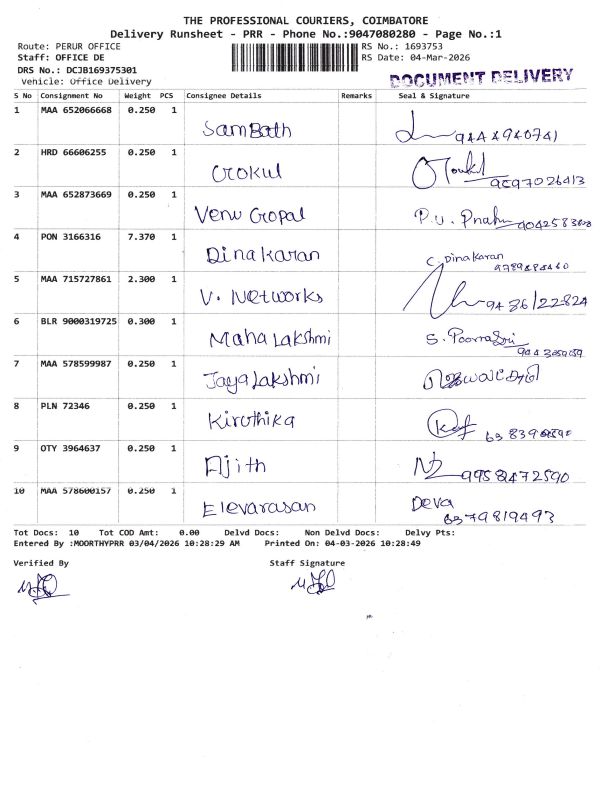 THE PROFESSIONAL COURIERS, COIMBATORE
Delivery Runsheet - PRR - Phone No.:9047080280 - Page No.:1
Route: PERUR OFFICE RS No.: 1693753
Staff: OFFICE DE RS Date: 04-Mar-2026
DRS No.: DCJB169375301
Vehicle: Office Delivery DOCUMENT DELIVERY
S No Consignment No Weight PCS Consignee Details Remarks Seal & Signature
1 MAA 652066668 0.250 1 Sambath 9444940741
2 HRD 66606255 0.250 1 Gokul Gokul 9597026413
3 MAA 652873669 0.250 1 Venu Gopal P.V.
4 PON 3166316 7.370 1 Dinakaran C. Dinakaran
5 MAA 715727861 2.300 1 V. Networks
6 BLR 9000319725 0.300 1 Maha Lakshmi S.
7 MAA 578599987 0.250 1 Jaya Lakshmi
8 PLN 72346 0.250 1 Kiruthika
9 OTY 3964637 0.250 1 Ajith
10 MAA 578600157 0.250 1 Elevarasan Deva
6379819493
Tot Docs: 10 Tot COD Amt: 0.00 Delvd Docs: Non Delvd Docs: Delvy Pts:
Entered By :MOORTHYPRR 03/04/2026 10:28:29 AM Printed On: 04-03-2026 10:28:49
Verified By Staff Signature